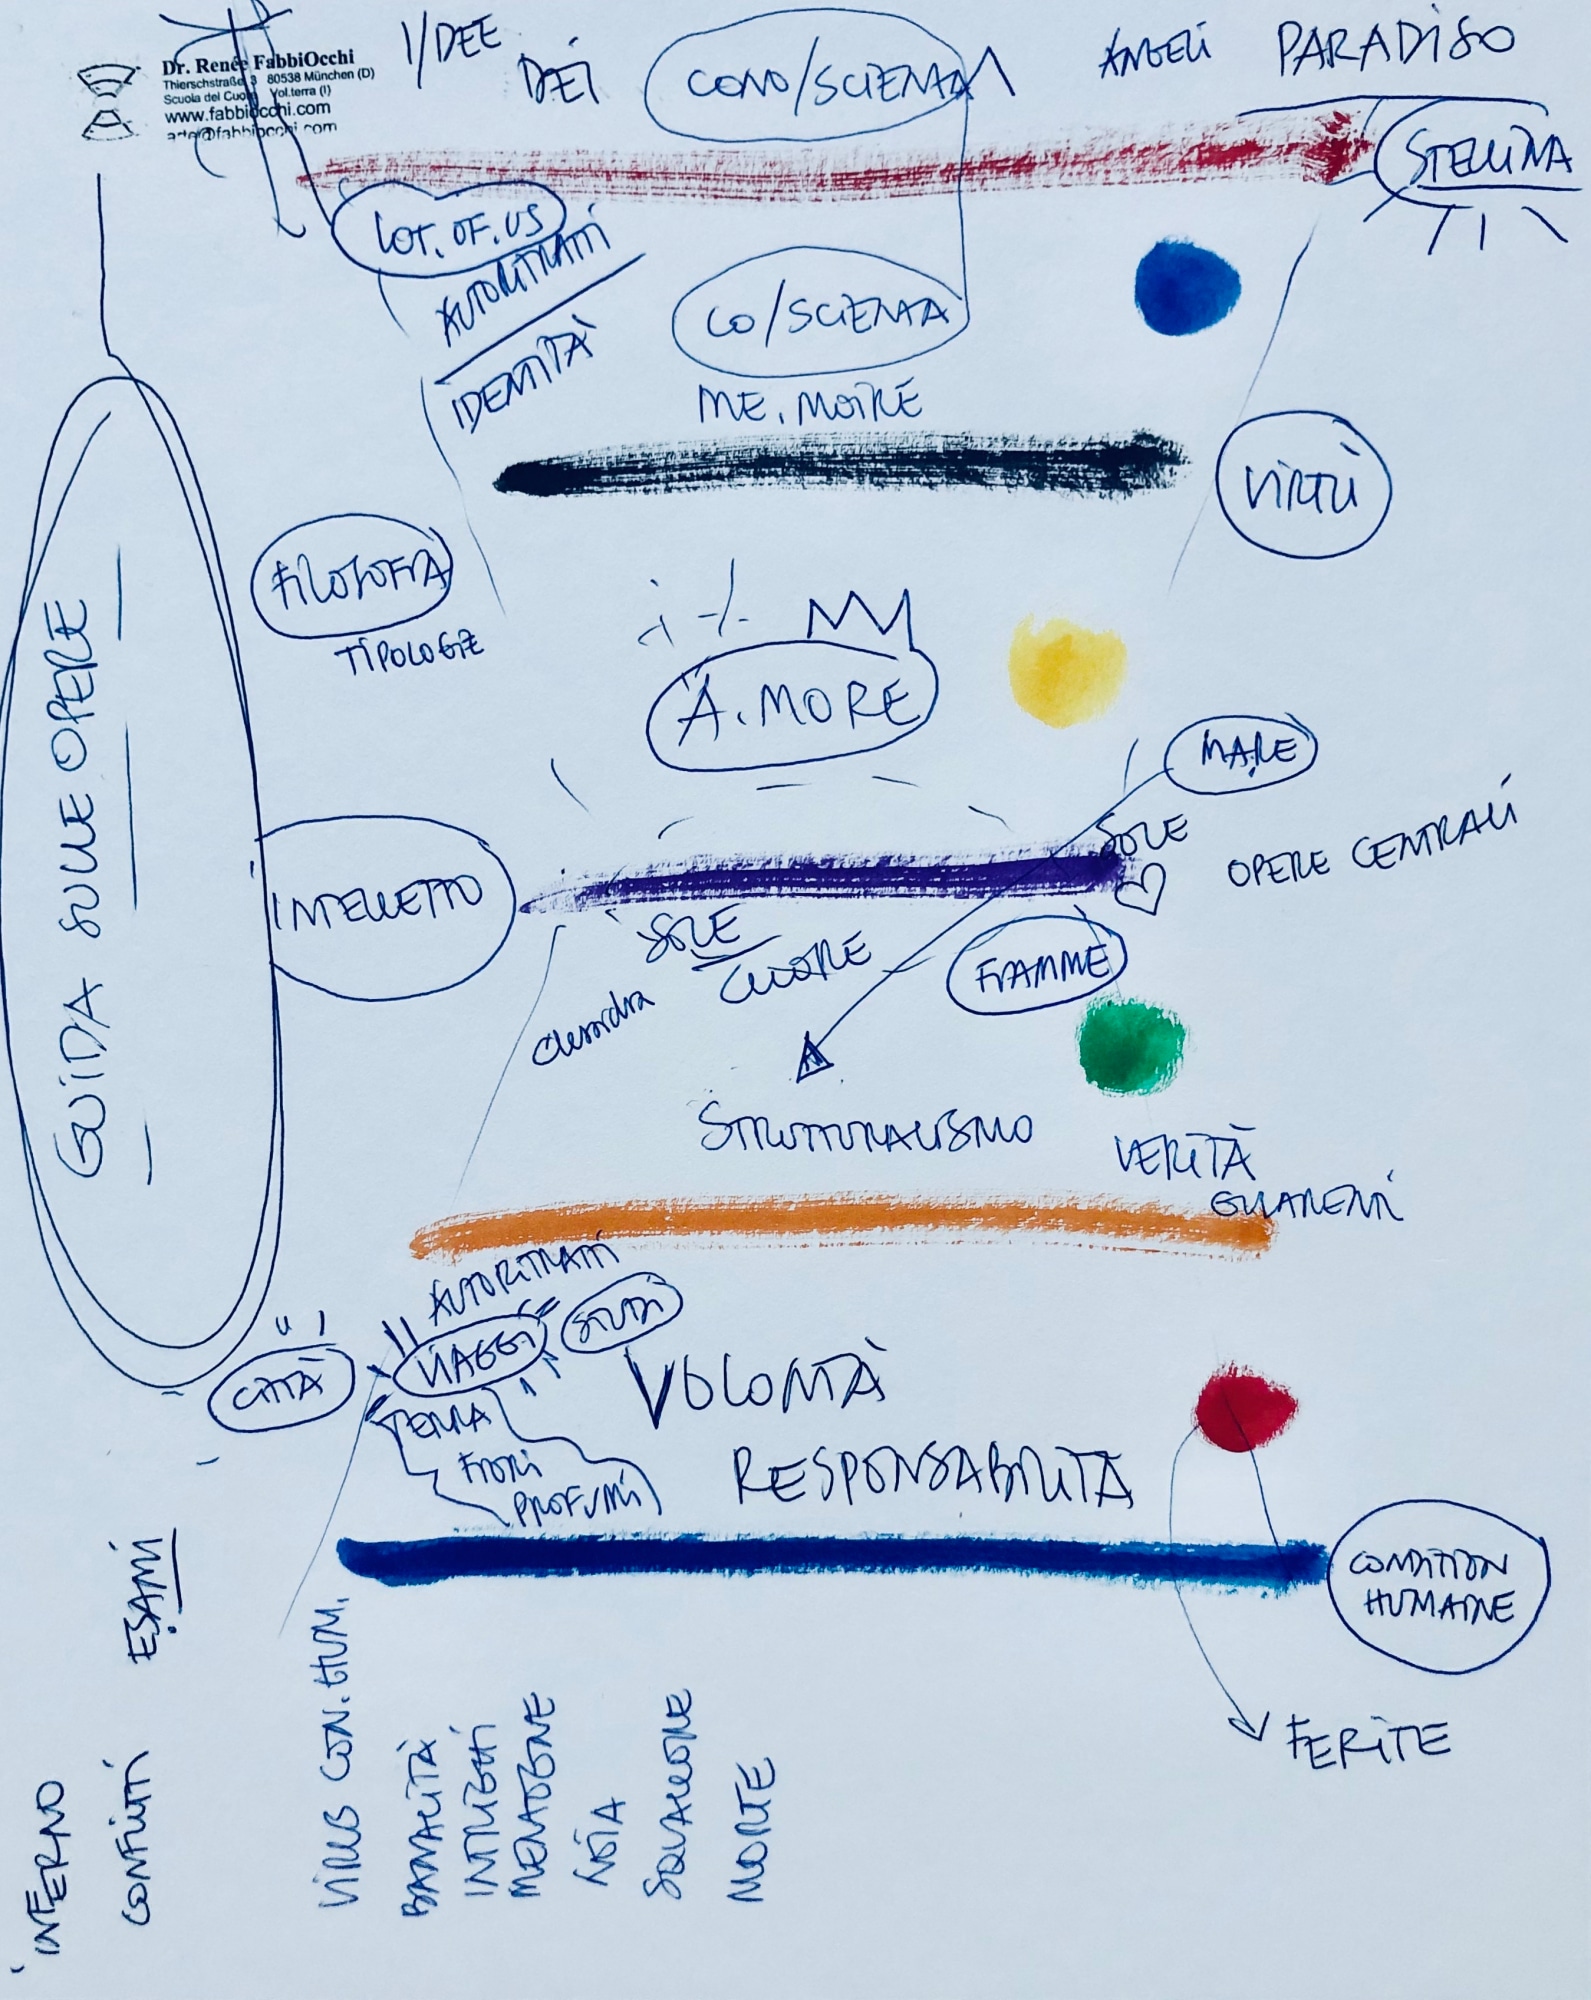 Dr. Renée FabbiOcchi
Thierschstraße 3 80538 München (D)
Scuola del Cuore Vol.terra (I)
www.fabbiocchi.com
arte@fabbiocchi.com
I/DEE
DEI
CONO/SCIENZA
ANGELI
PARADISO
STELLINA
LOT.OF.US
AUTORITRATTI
IDENTITÀ
CO/SCIENZA
ME.MOIRE
VIRTÙ
FILOSOFIA
TIPOLOGIE
A.MORE
MARE
SOLE
OPERE CENTRALI
GUIDA SULLE OPERE
INTELLETTO
SOLE
CUORE
FIAMME
STRUTTURALISMO
VERITÀ
AUTORITRATTI
VIAGGI
STUDI
CITTÀ
TERRA
FIORI
PROFUMI
VOLONTÀ
RESPONSABILITÀ
CONDITION
HUMAINE
ESAMI
FERITE
INFERNO
CONFLITTI
VIRUS CON.HUM.
BANALITÀ
INTRIGHI
MENZOGNE
NOIA
SQUALLORE
MORTE